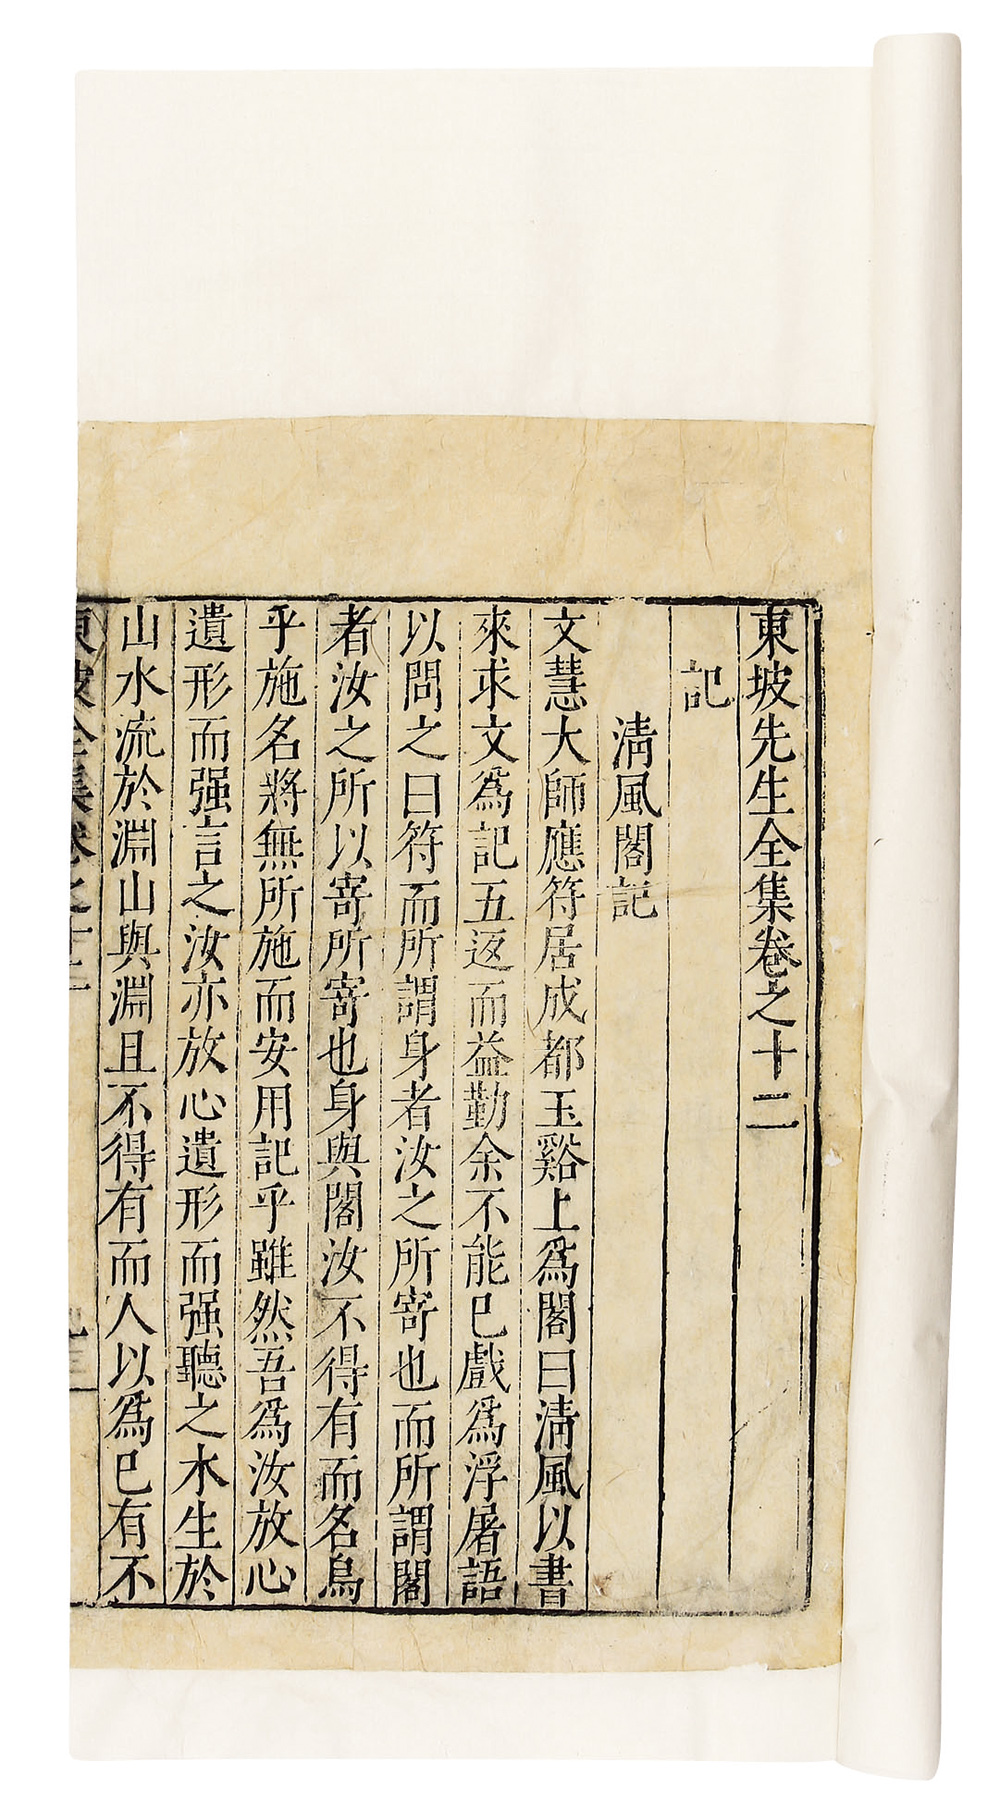 東坡先生全集卷之十二
記
清風閣記
文慧大師應符居成都玉谿上爲閣曰清風以書
來求文爲記五返而益勤余不能已戲爲浮屠語
以問之曰符而所謂身者汝之所寄也而所謂閣
者汝之所以寄所寄也身與閣汝不得有而名烏
乎施名將無所施而安用記乎雖然吾爲汝放心
遺形而强言之汝亦放心遺形而强聽之木生於
山水流於淵山與淵且不得有而人以爲已有不
東坡全集卷之十二